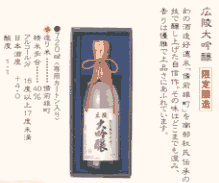 広陵大吟醸 限定醸造
幻の酒造好適米「備前雄町」を南部杜氏伝承の
技で醸し上げた自信作。その味はどこまでも澄み、
香りは優雅で上品さにあふれています。
●720ml(専用カートン入り)
●造り米 備前雄町
精米歩合 40%
アルコール分 16度以上17度未満
日本酒度 +4.0
酸度
大吟醸